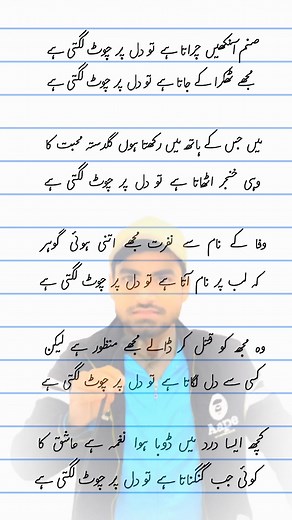 صنم آنکھیں چراتا ہے تو دل پر چوٹ لگتی ہے
مجھے ٹھکرا کے جاتا ہے تو دل پر چوٹ لگتی ہے
میں جس کے ہاتھ میں رکھتا ہوں گلدستہ محبت کا
وہی خنجر اٹھاتا ہے تو دل پر چوٹ لگتی ہے
وفا کے نام سے نفرت مجھے اتنی ہوئی گوہر
کہ لب پر نام آتا ہے تو دل پر چوٹ لگتی ہے
وہ مجھ کو قتل کر ڈالے مجھے منظور ہے لیکن
کسی سے دل لگاتا ہے تو دل پر چوٹ لگتی ہے
کچھ ایسا درد میں ڈوبا ہوا نغمہ ہے عاشق کا
کوئی جب گنگناتا ہے تو دل پر چوٹ لگتی ہے